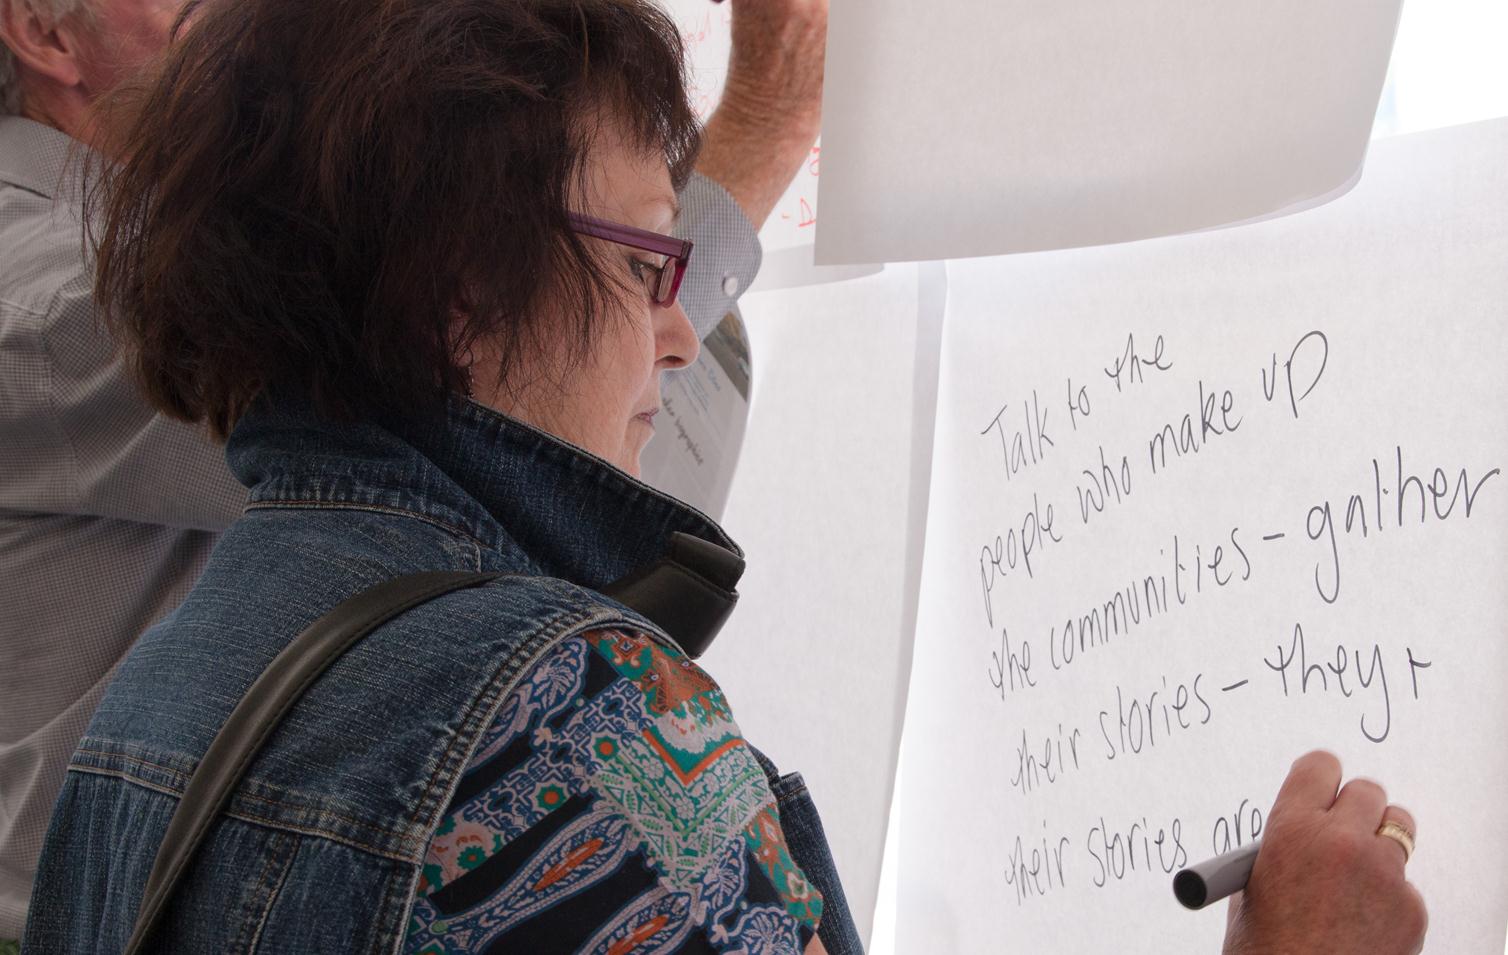 Talk to the
people who make up
the communities - gather
their stories - they +
their stories are